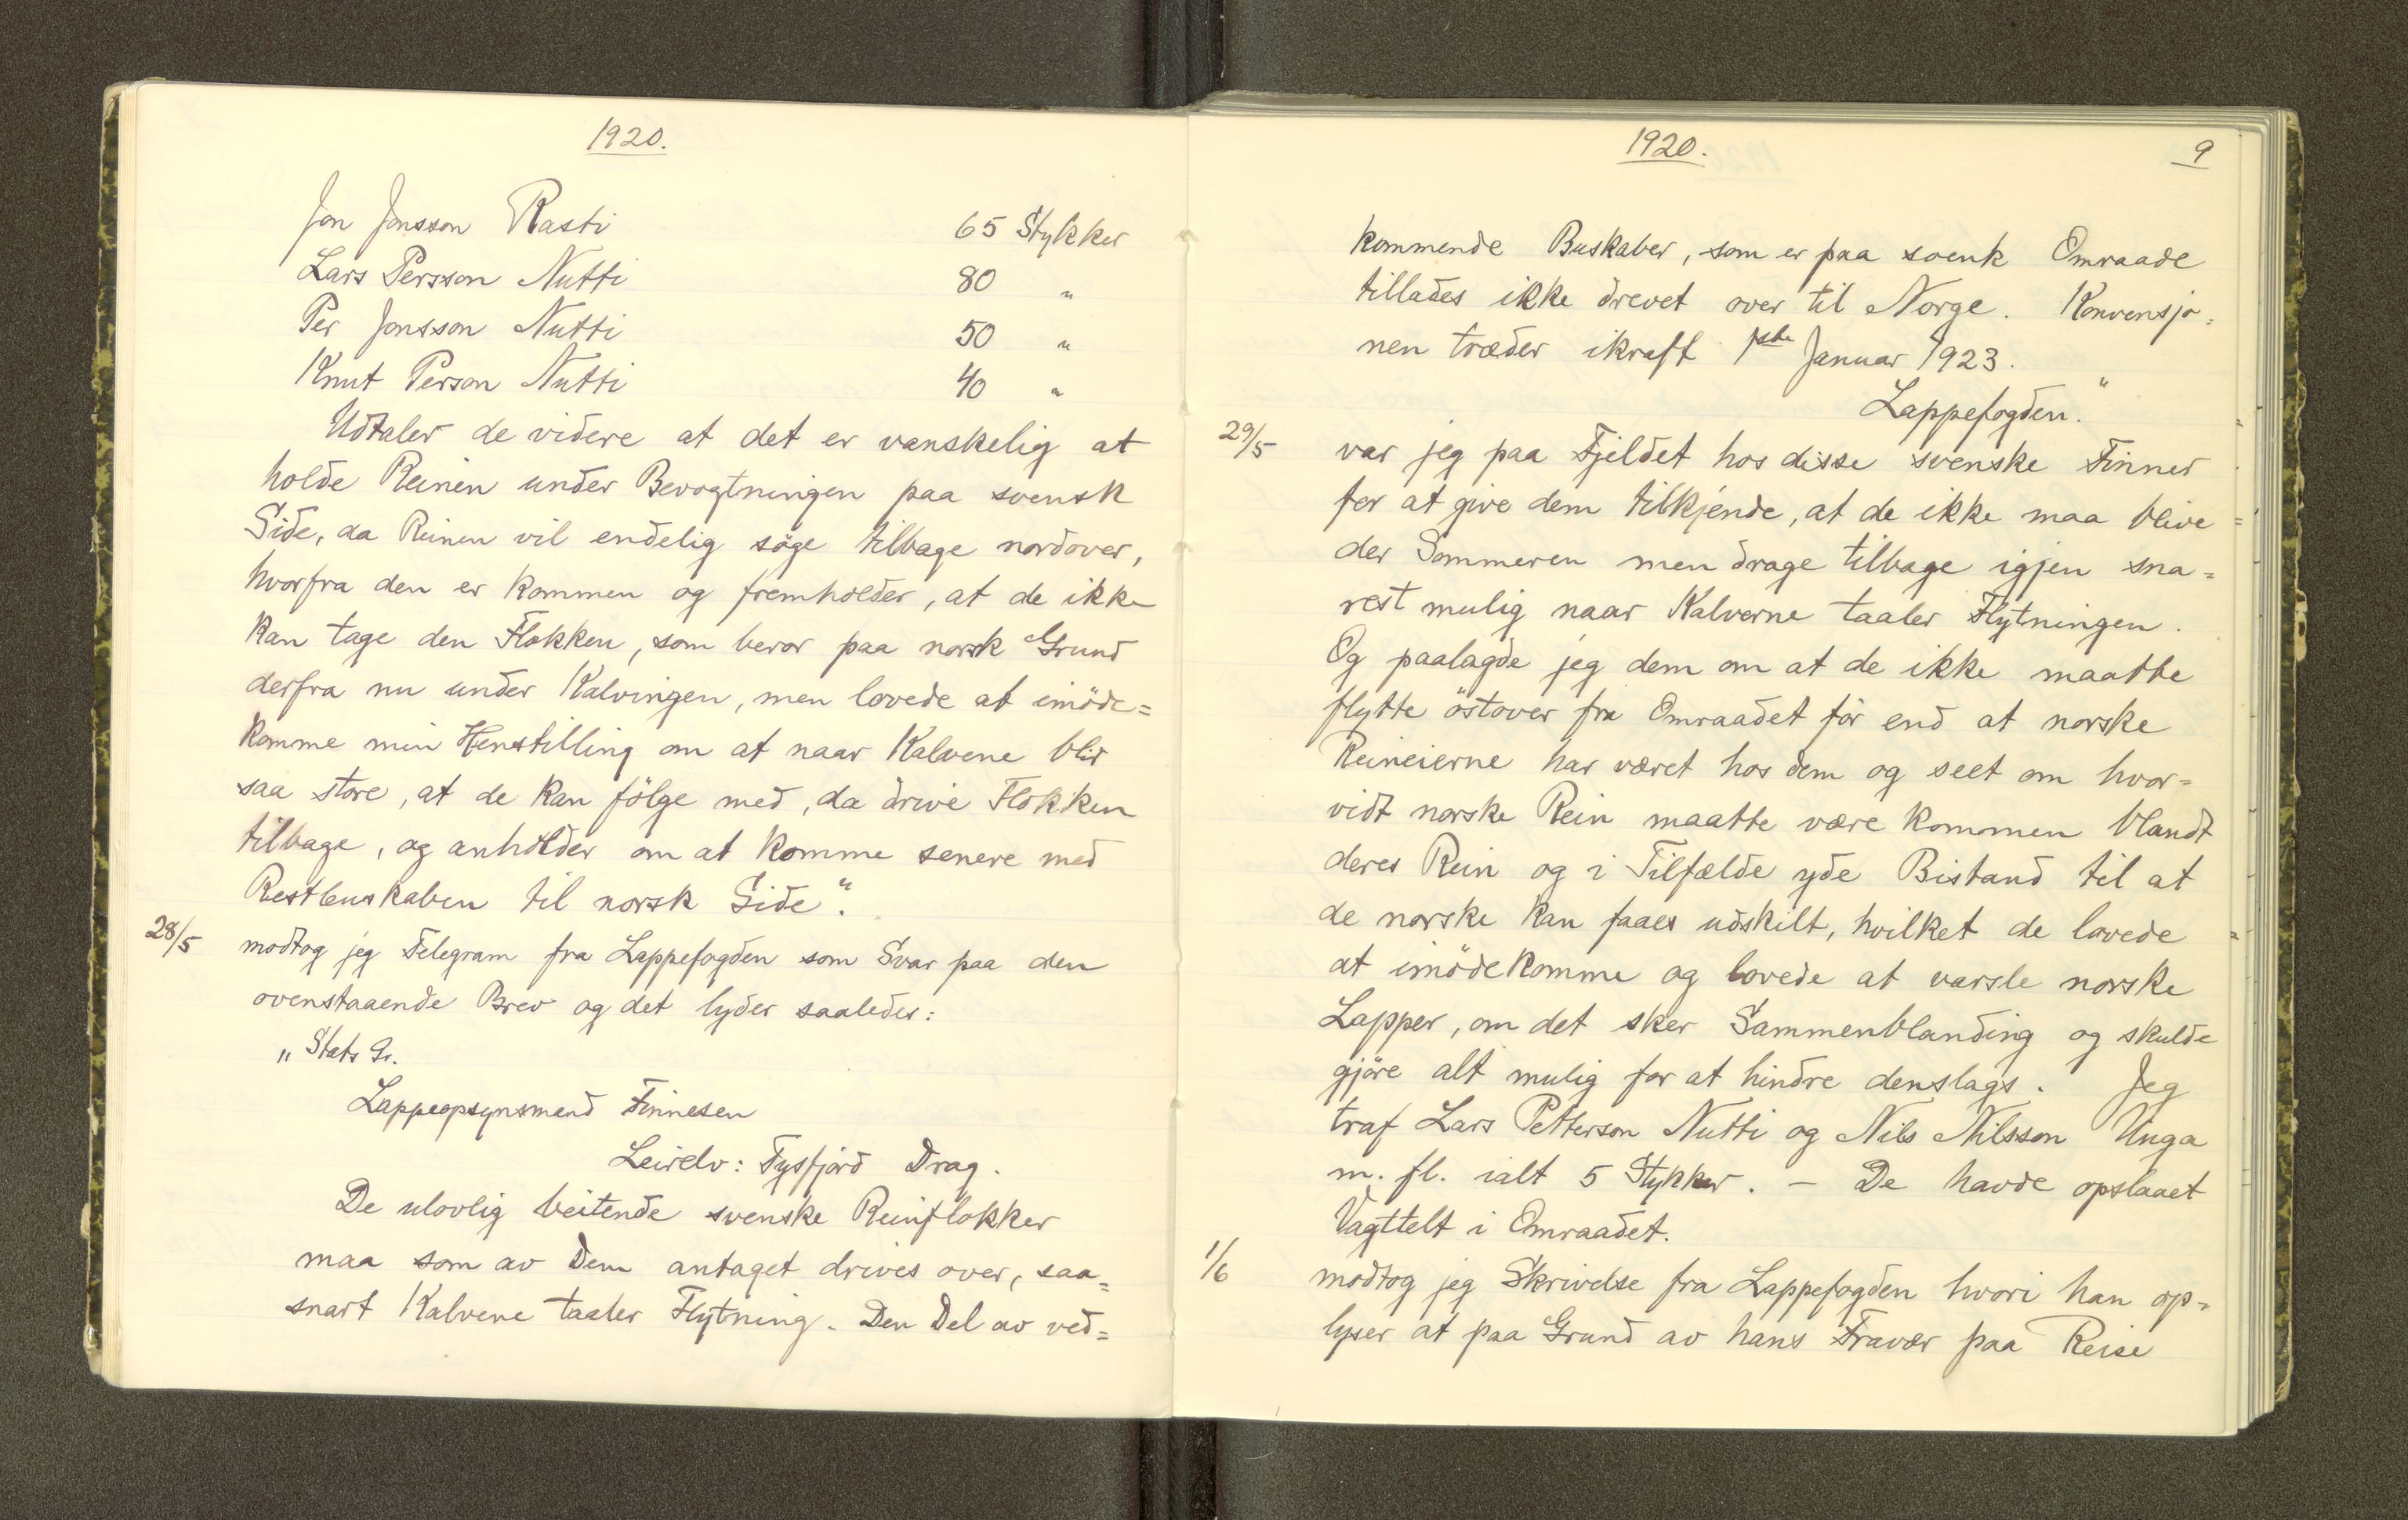 1920.
Jon Jonsson Rasti 65 Stykker
Lars Persson Nutti 80 "
Per Jonsson Nutti 50 "
Knut Person Nutti 40 "
Udtaler de videre at det er vanskelig at
holde Reinen under Bevogtningen paa svensk
Side, da Reinen vil endelig söge tilbage nordover,
hvorfra den er kommen og fremholder, at de ikke
kan tage den Flokken, som beror paa norsk Grund
derfra nu under Kalvingen, men lovede at imöde=
komme min Henstilling om at naar Kalvene blir
saa store, at de kan fölge med, da drive Flokken
tilbage, og anholder om at komme senere med
Restbuskaben til norsk Side".
28/5 modtog jeg Telegram fra Lappefogden som Svar paa den
ovenstaaende Brev og det lyder saaledes:
„Stats
Lappeopsynsmend Finnesen
Leirelv: Tysfjord Drag.
De ulovlig beitende svenske Reinflokker
maa som av Dem antaget drives over, saa=
snart Kalvene taaler Flytning. Den Del av ved=
1920. 9
kommende Buskaber, som er paa svenk Omraade
tillades ikke drevet over til Norge. Konvensjo=
nen træder ikraft 1ste Januar 1923.
Lappefogden."
29/5 var jeg paa Fjeldet hos disse svenske Finner
for at give dem tilkjende, at de ikke maa blive
der Sommeren men drage tilbage igjen sna=
rest mulig naar Kalverne taaler Flytningen.
Og paalagde jeg dem om at de ikke maatte
flytte östover fra Omraadet för end at norske
Reineierne har været hos dem og seet om hvor=
vidt norske Rein maatte være kommen blandt
deres Rein og i Tilfælde yde Bistand til at
de norske kan faaes udskilt, hvilket de lovede
at imödekomme og lovede at varsle norske
Lapper, om det sker Sammenblanding og skulde
gjöre alt mulig for at hindre denslags. Jeg
traf Lars Petterson Nutti og Nils Nilsson Unga
m. fl. ialt 5 Stykker. – De havde opslaaet
Vagttelt i Omraadet.
1/6 modtog jeg Skrivelse fra Lappefogden hvori han op=
lyser at paa Grund av hans Fravær paa Reise